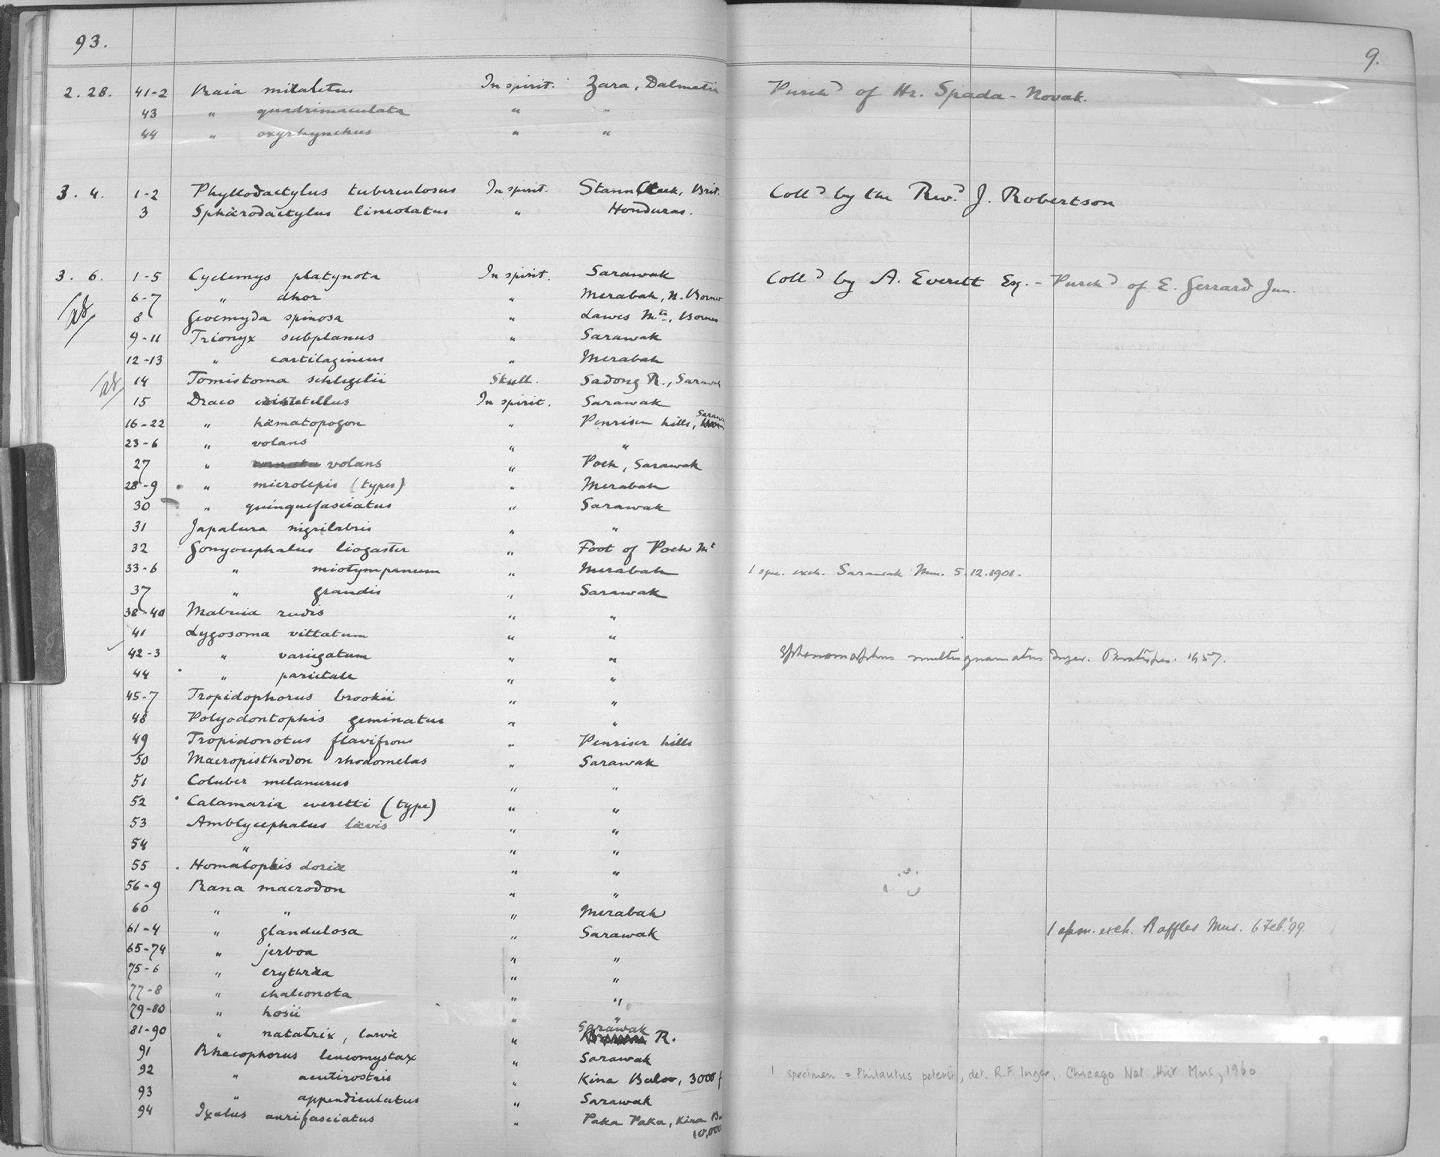 93.
9.
2.28. 41-2 Raia miraletus In spirit. Zara, Dalmatia Purchd of Hr. Spada-Novak.
43 " quadrimaculata " "
44 " oxyrhynchus " "
3.4. 1-2 Phyllodactylus tuberculosus In spirit. Stann Creek, Brit. Colld by the Revd J. Robertson
3 Sphærodactylus lineolatus " Honduras.
3.6. 1-5 Cyclemys platynota In spirit. Sarawak Colld by A. Everett Esq. - Purchd of E. Gerrard Jun.
6-7 " dhor " Merabah, N. Borneo
8 Geoemyda spinosa " Lawes Mts, Borneo
9-11 Trionyx subplanus " Sarawak
12-13 " cartilagineus " Merabah
14 Tomistoma schlegelii Skull. Sadong R., Sarawak
15 Draco In spirit. Sarawak
16-22 " hæmatopogon " Penrisen hills, Sarawak
23-6 " volans " "
27 " volans " Poeh, Sarawak
28-9 " microlepis (types) " Merabah
30 " quinquefasciatus " Sarawak
31 Japalura nigrilabris " "
32 Gonyocephalus liogaster " Foot of Poeh Mt
33-6 " miotympanum " Merabah 1 spec. exch. Sarawak Mus. 5.12.1901.
37 " grandis " Sarawak
38-40 Mabuia rudis " "
41 Lygosoma vittatum " "
42-3 " variegatum " " Sphenomorphus multisquamatus Inger. Paratypes. 1957.
44 " parietale " "
45-7 Tropidophorus brookii " "
48 Polyodontophis geminatus " "
49 Tropidonotus flavifrons " Penrisen hills
50 Macropisthodon rhodomelas " Sarawak
51 Coluber melanurus " "
52 Calamaria everetti (type) " "
53 Amblycephalus lævis " "
54 " " "
55 Homalophis doriæ " "
56-9 Rana macrodon " "
60 " " " Merabah
61-4 " glandulosa " Sarawak 1 spm. exch. Raffles Mus. 6 Feb '99.
65-74 " jerboa " "
75-6 " erythræa " "
77-8 " chalconota " "
79-80 " hosii " "
81-90 " natatrix, larvæ " Sarawak R.
91 Rhacophorus leucomystax " Sarawak
92 " acutirostris " Kina Baloo, 3000 f 1 specimen = Philautus petersi, det. R.F. Inger, Chicago Nat Hist Mus, 1960
93 " appendiculatus " Sarawak
94 Ixalus aurifasciatus " Paka Paka, Kina Ba
10,000